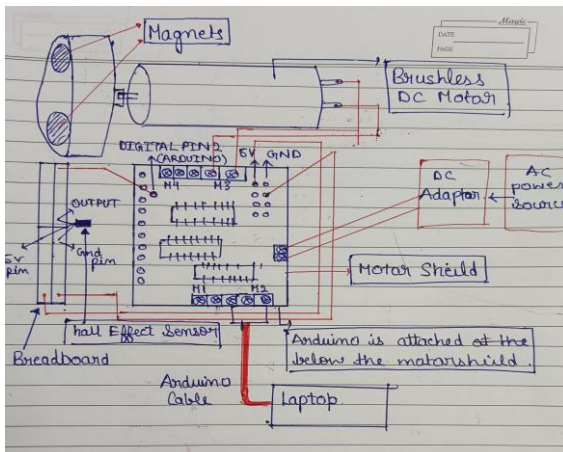 Magic
DATE
PAGE
Magnets
Brushless
DC Motor
DIGITAL PIN 2
(ARDUINO)
5V
GND
M4
M3
DC
Adaptor
AC
power
source
OUTPUT
5v
pin
Gnd
pin
Motor Shield
M1
M2
hall Effect Sensor
Breadboard
Arduino is attached at the
below the motarshield.
Arduino
Cable
Laptop